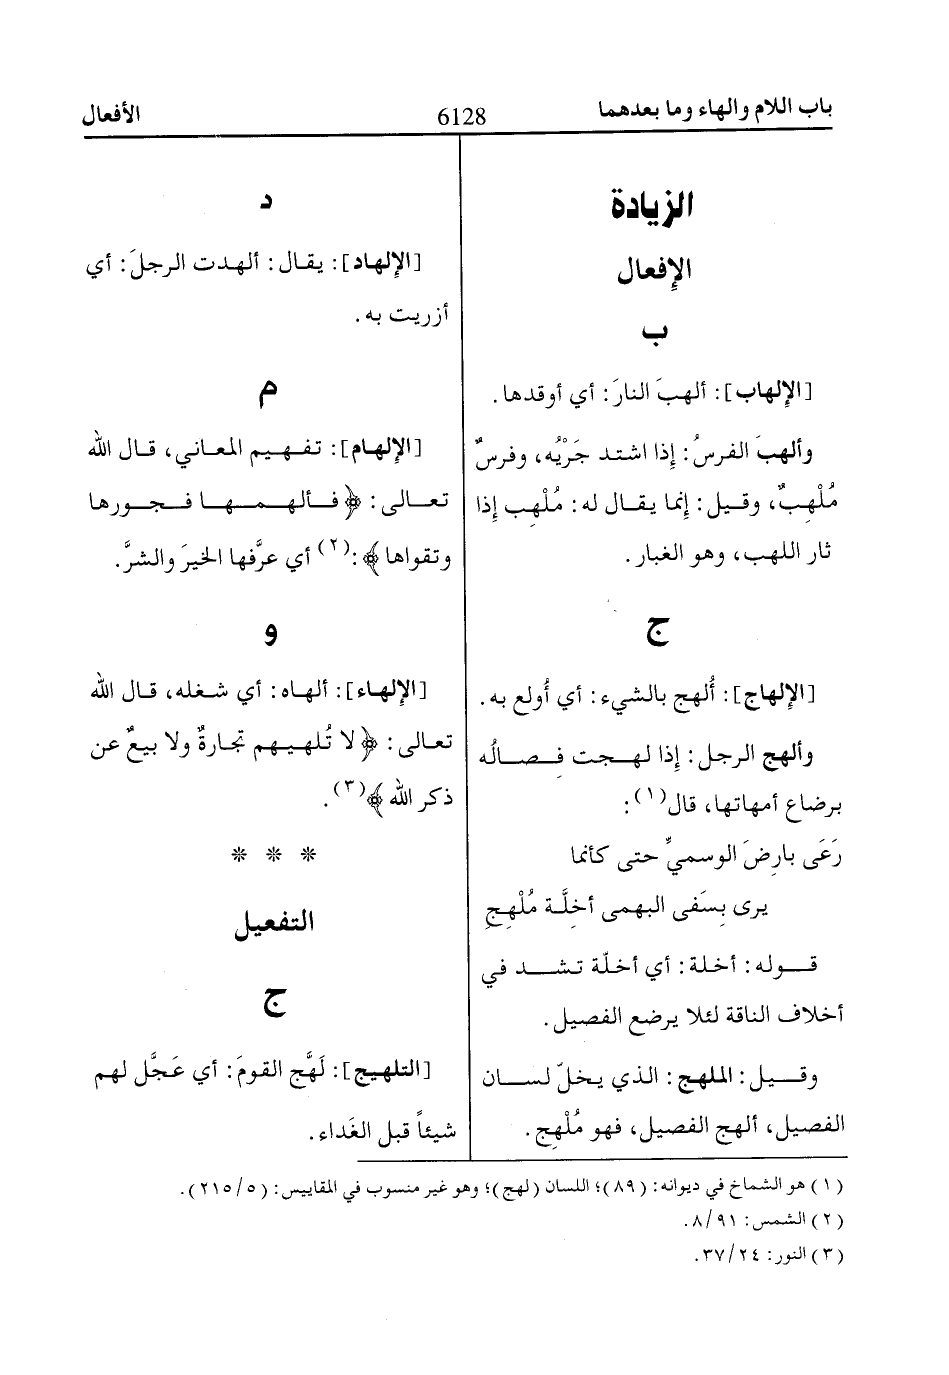 باب اللام والهاء وما بعدهما
6128
الأفعال
الزيادة
الإفعال
ب
[الإلهاب]: ألهبَ النارَ: أي أوقدها.
وألهبَ الفرسُ: إذا اشتد جَرْيُه، وفرسٌ
مُلْهِبٌ، وقيل: إنما يقال له: مُلْهِب إذا
ثار اللهب، وهو الغبار.
ج
[الإلهاج]: أُلهج بالشيء: أي أُولع به.
وألهج الرجل: إذا لهجت فِصالُه
برضاع أمهاتها، قال(١):
رَعَى بارِضَ الوسميِّ حتى كأنما
يرى بِسَفى البهمى أخِلَّة مُلْهِجِ
قوله: أخلة: أي أخلّة تشد في
أخلاف الناقة لئلا يرضع الفصيل.
وقيل: الملهج: الذي يخلّ لسان
الفصيل، ألهج الفصيل، فهو مُلْهِج.
د
[الإلهاد]: يقال: ألهدت الرجلَ: أي
أزريت به.
م
[الإلهام]: تفهيم المعاني، قال الله
تعالى: ﴿فألهمها فجورها
وتقواها﴾:(٢) أي عرَّفها الخيرَ والشرَّ.
و
[الإلهاء]: ألهاه: أي شغله، قال الله
تعالى: ﴿لا تُلهيهم تجارةٌ ولا بيعٌ عن
ذكر الله﴾(٣).
* * *
التفعيل
ج
[التلهيج]: لَهَّج القومَ: أي عَجَّل لهم
شيئاً قبل الغَداء.
(١) هو الشماخ في ديوانه: (٨٩)؛ اللسان (لهج)؛ وهو غير منسوب في المقاييس: (٢١٥/٥).
(٢) الشمس: ٨/٩١.
(٣) النور: ٣٧/٢٤.